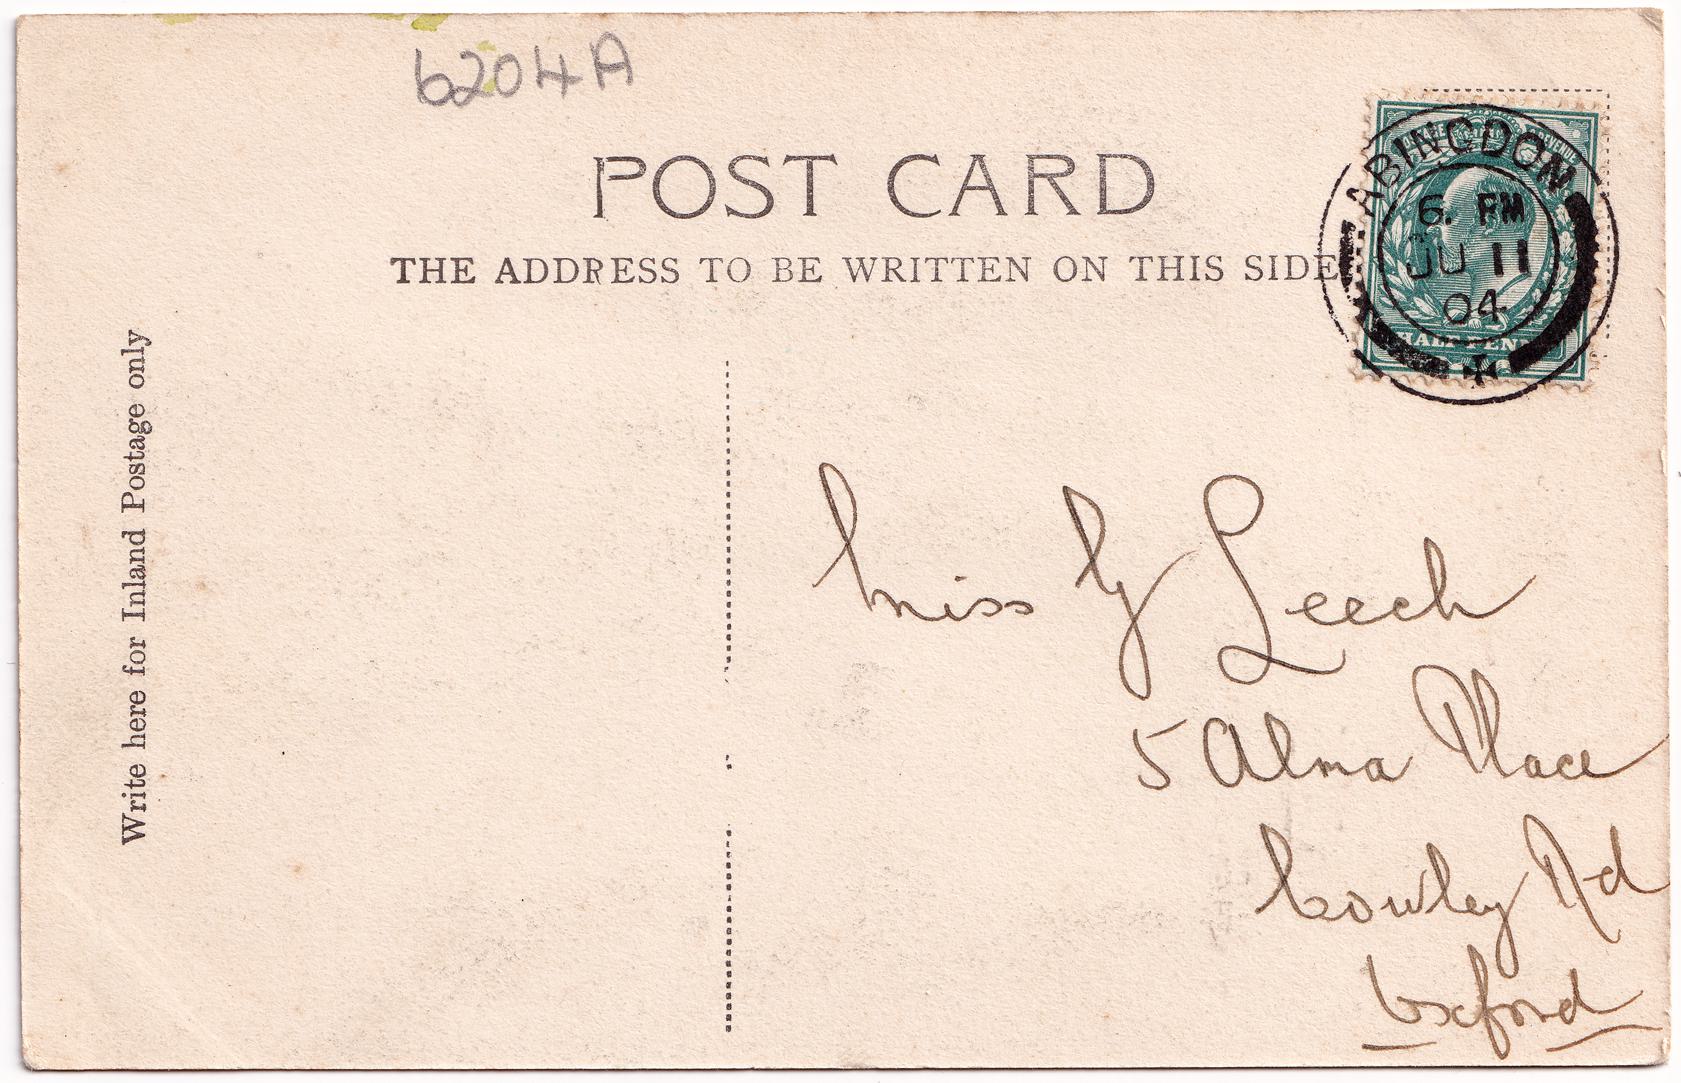 6204A
POST CARD
THE ADDRESS TO BE WRITTEN ON THIS SIDE
ABINGDON
6. PM
JU 11
04
HALF PENN
REVENUE
Write here for Inland Postage only
Miss G Leech
5 Alma Place
Cowley Rd
Oxford